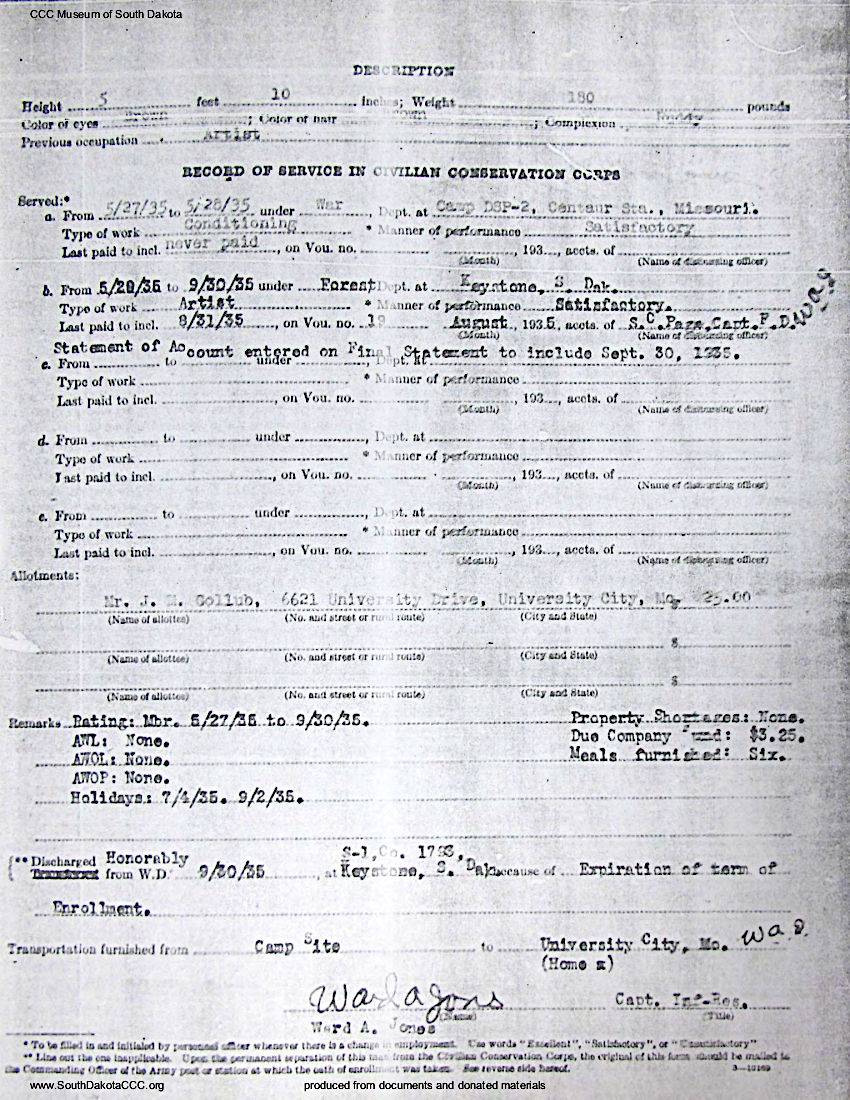 CCC Museum of South Dakota
DESCRIPTION
Height 5 feet 10 inches; Weight 180 pounds
Color of eyes Brown; Color of hair; Complexion
Previous occupation Artist
RECORD OF SERVICE IN CIVILIAN CONSERVATION CORPS
Served:*
a. From 5/27/35 to 5/28/35 under War, Dept. at Camp DSP-2, Centaur Sta., Missouri.
Type of work Conditioning * Manner of performance Satisfactory
Last paid to incl. never paid, on Vou. no. , 193, accts. of
(Month) (Name of disbursing officer)
b. From 5/28/35 to 9/30/35 under Forest Dept. at Keystone, S. Dak.
Type of work Artist * Manner of performance Satisfactory.
Last paid to incl. 8/31/35, on Vou. no. 19 August, 1935, accts. of S.C. Page, Capt. F.D. WAJ
(Month) (Name of disbursing officer)
Statement of Account entered on Final Statement to include Sept. 30, 1935.
c. From to under, Dept. at
Type of work * Manner of performance
Last paid to incl., on Vou. no. , 193, accts. of
(Month) (Name of disbursing officer)
d. From to under, Dept. at
Type of work * Manner of performance
Last paid to incl., on Vou. no. , 193, accts. of
(Month) (Name of disbursing officer)
e. From to under, Dept. at
Type of work * Manner of performance
Last paid to incl., on Vou. no. , 193, accts. of
(Month) (Name of disbursing officer)
Allotments:
Mr. J. Gollub, 6621 University Drive, University City, Mo. $ 25.00
(Name of allottee) (No. and street or rural route) (City and State)
$
(Name of allottee) (No. and street or rural route) (City and State)
$
(Name of allottee) (No. and street or rural route) (City and State)
Remarks Rating: Mbr. 5/27/35 to 9/30/35. Property Shortages: None.
AWL: None. Due Company Fund: $3.25.
AWOL: None. Meals furnished: Six.
AWOP: None.
Holidays: 7/4/35. 9/2/35.
S-1, Co. 1793,
** Discharged Honorably
Transferred from W.D. 9/30/35, at Keystone, S. Dak. because of Expiration of term of
Enrollment.
Transportation furnished from Camp Site to University City, Mo. WAJ
(Home x)
Ward A Jones Capt. Inf-Res.
(Name) (Title)
Ward A. Jones
* To be filled in and initialed by personnel officer whenever there is a change in employment. Use words "Excellent", "Satisfactory", or "Unsatisfactory"
** Line out the one inapplicable. Upon the permanent separation of this man from the Civilian Conservation Corps, the original of this form should be mailed to
the Commanding Officer of the Army post or station at which the oath of enrollment was taken. See reverse side hereof.
www.SouthDakotaCCC.org produced from documents and donated materials